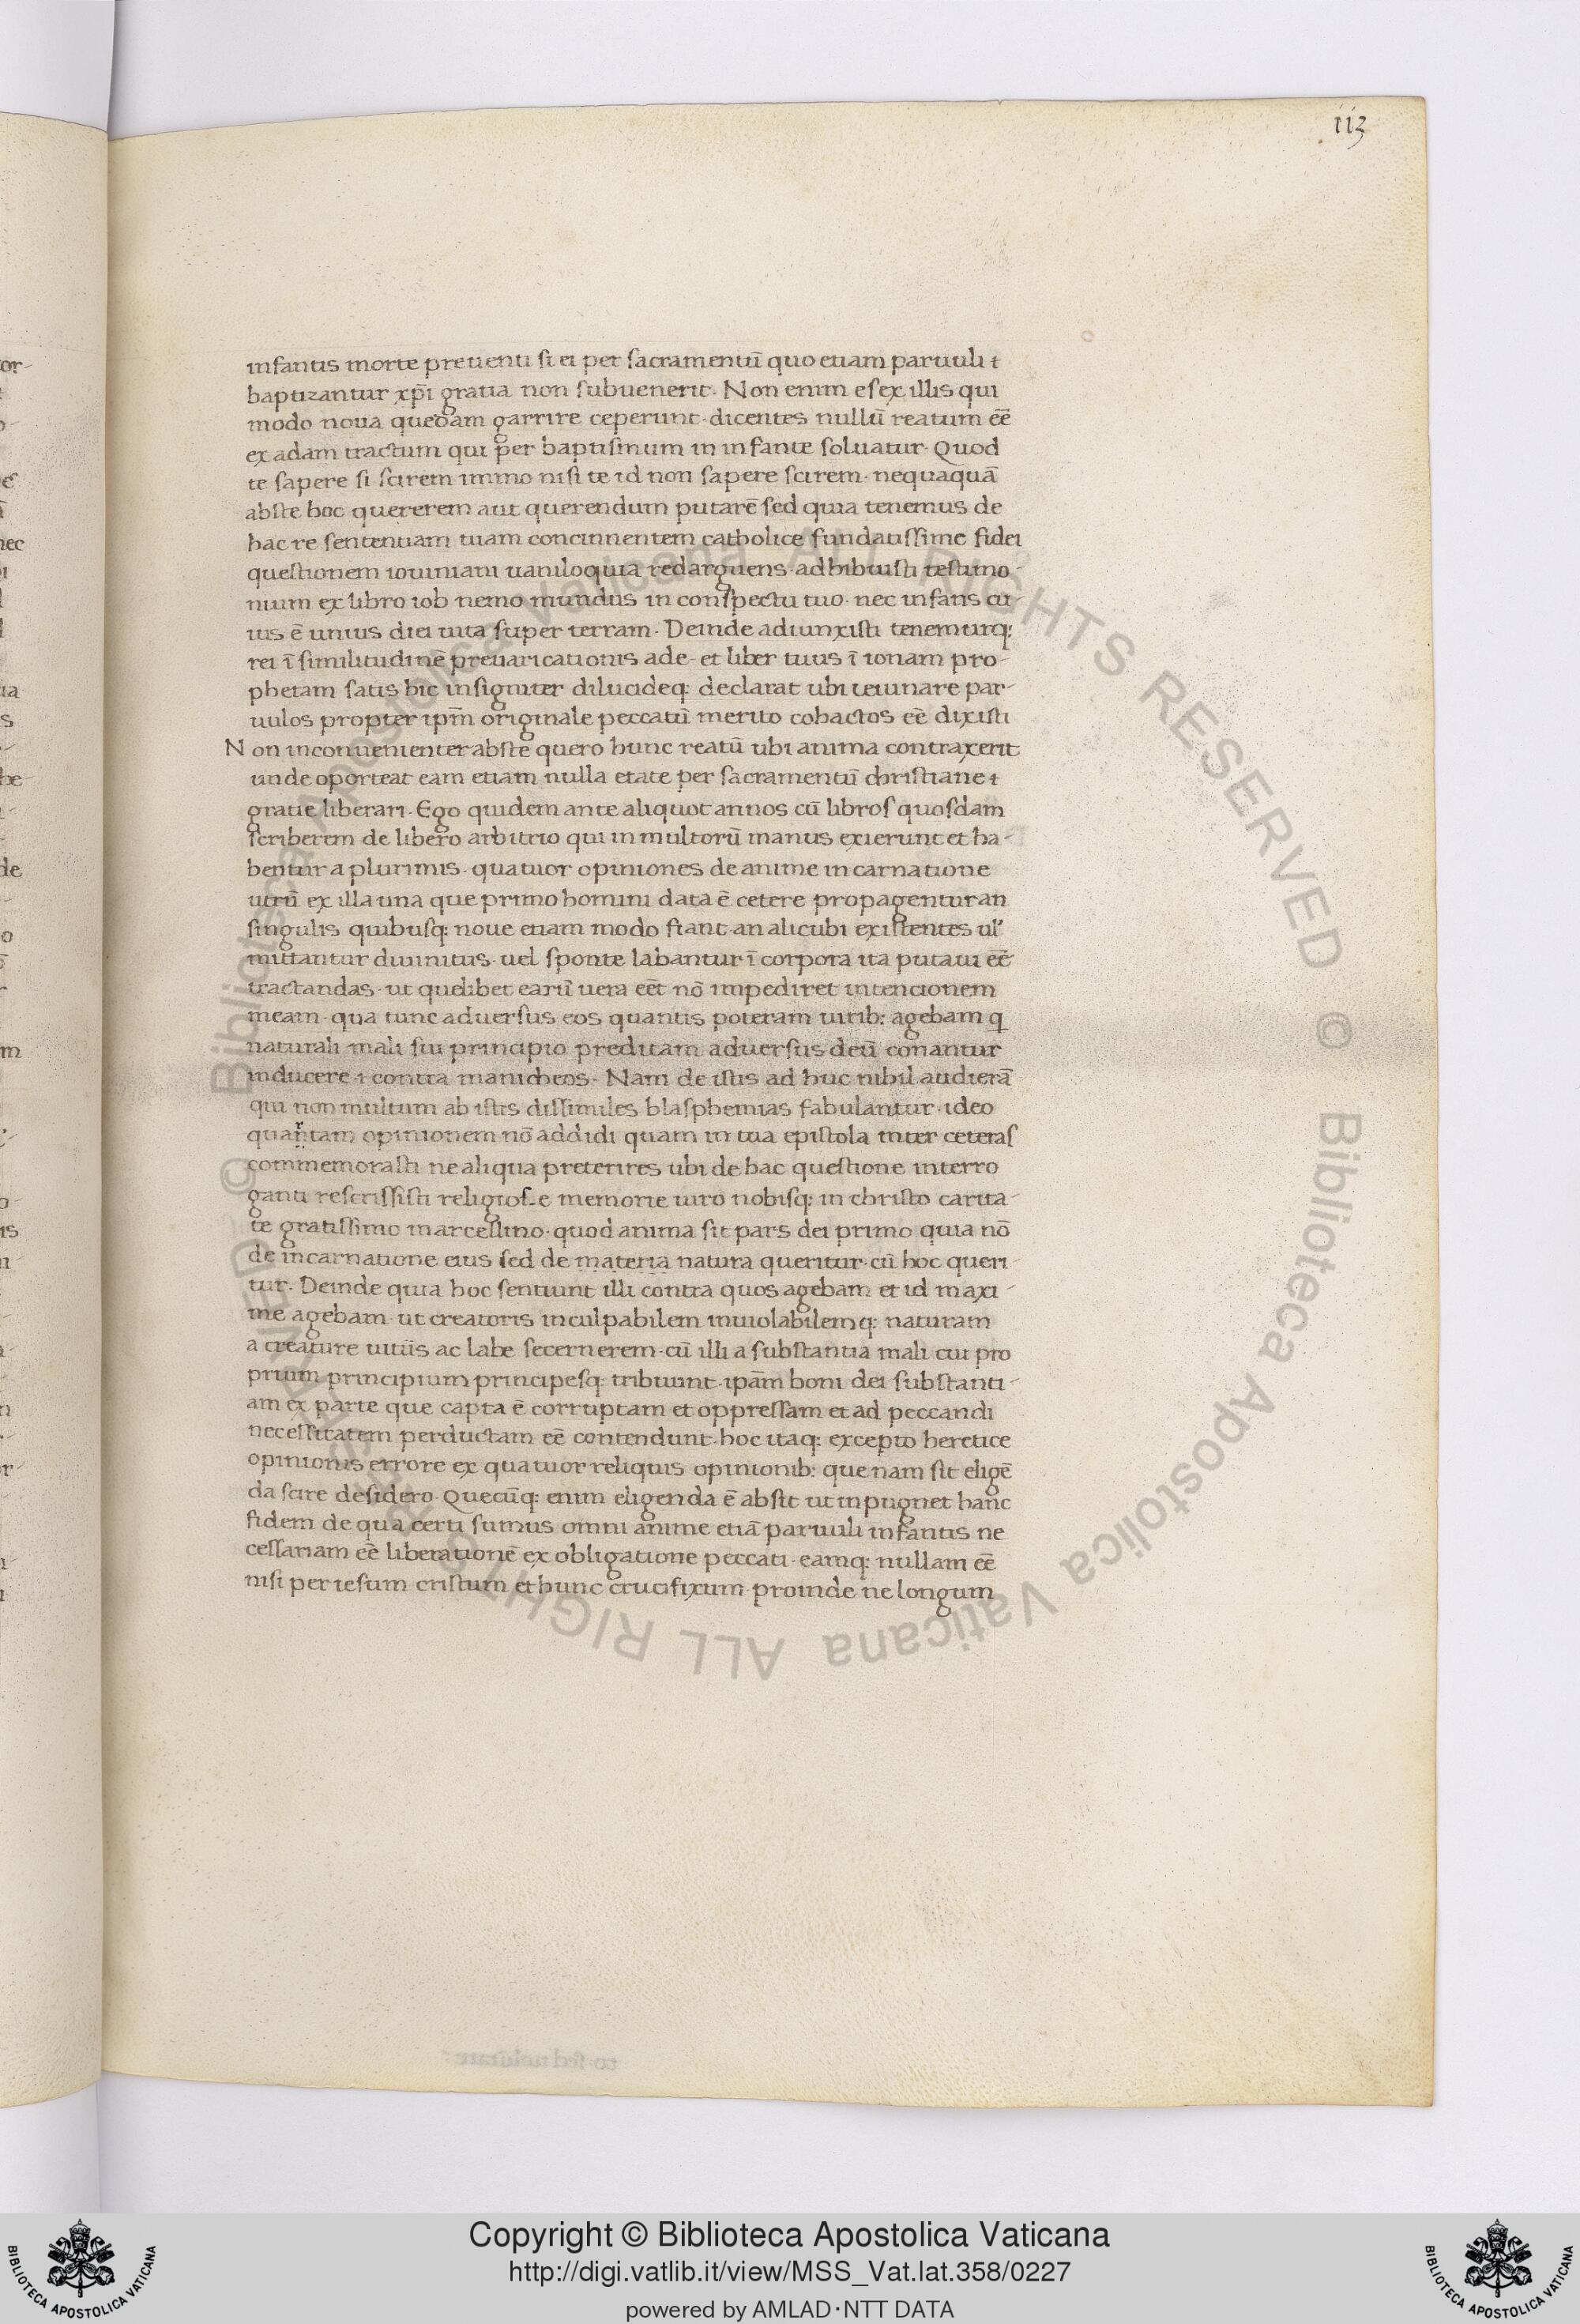 113
infantis morte preuenti si ei per sacramentū quo etiam paruuli ɩ
baptizantur xp̄i gratia non subuenerit· Non enim es ex illis qui
modo noua quedam garrire ceperunt· dicentes nullū reatum eē
ex adam tractum qui per baptismum in infante soluatur· Quod
te sapere si scirem immo nisi te id non sapere scirem· nequaquā
abste hoc quererem aut querendum putarē sed quia tenemus de
hac re sententiam tuam concinnentem catholice fundatissime fidei
questionem iouiniani uaniloquia redarguens· adhibuisti testimo-
nium ex libro iob nemo mundus in conspectu tuo· nec infans cu-
ius ē unius diei uita super terram· Deinde adiunxisti tenemurq:
rei ī similitudinē preuaricationis ade· et liber tuus ī ionam pro-
phetam satis hic insigniter dilucideq: declarat ubi ieiunare par-
uulos propter ipm̄ originale peccatū merito cohactos eē dixisti
Non inconuenienter abste quero hunc reatū ubi anima contraxerit
unde oporteat eam etiam nulla etate per sacramentū christiane ɩ
gratie liberari· Ego quidem ante aliquot annos cū libros quosdam
scriberem de libero arbitrio qui in multorū manus exierunt et ha-
bentur a plurimis· quatuor opiniones de anime incarnatione
utrū ex illa una que primo homini data ē cetere propagentur an
singulis quibusq: noue etiam modo fiant· an alicubi existentes ul'
mittantur diuinitus· uel sponte labantur ī corpora ita putaui eē
tractandas· ut quelibet earū uera eēt nō impediret intencionem
meam· qua tunc aduersus eos quantis poteram uirib: agebam q
naturali mali sui principio preditam aduersus deū conantur
inducere ɩ contra manicheos· Nam de istis ad huc nihil audierā
qui non multum ab istis dissimiles blasphemias fabulantur· ideo
quartam opinionem nō addidi quam in tua epistola inter ceteras
commemorasti ne aliqua preterires ubi de hac questione interro
ganti rescrissisti religiose memorie uiro nobisq: in christo carita-
te gratissimo marcellino· quod anima sit pars dei primo quia nō
de incarnatione eius sed de materia natura queritur· cū hoc queri-
tur· Deinde quia hoc sentiunt illi contra quos agebam et id maxi-
me agebam· ut creatoris inculpabilem inuiolabilemq: naturam
a creature uitiis ac labe secernerem· cū illi a substantia mali cui pro
prium principium principesq: tribuunt· ipām boni dei substanti-
am ex parte que capta ē corruptam et oppressam et ad peccandi
necessitatem perductam eē contendunt· hoc itaq: excepto heretice
opinionis errore ex quatuor reliquis opinionib: que nam sit eligē
da scire desidero· Quecūq: enim eligenda ē absit ut inpugnet hanc
fidem de qua certi sumus omni anime etiā paruuli infantis ne
cessariam eē liberationē ex obligatione peccati· eamq: nullam eē
nisi per iesum cristum et hunc crucifixum· proinde ne longum
© Biblioteca Apostolica Vaticana ALL RIGHTS RESERVED © Biblioteca Apostolica Vaticana ALL RIGHTS RESERVED
Copyright © Biblioteca Apostolica Vaticana
http://digi.vatlib.it/view/MSS_Vat.lat.358/0227
powered by AMLAD·NTT DATA
BIBLIOTECA APOSTOLICA VATICANA
BIBLIOTECA APOSTOLICA VATICANA